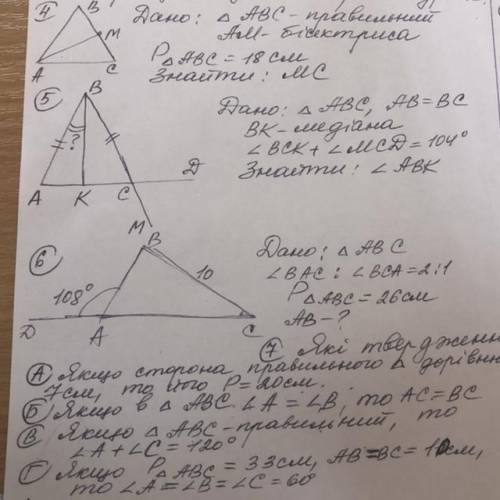 4
B
M
A
C
Дано: △ ABC - правильний
AM - бісектриса
P△ABC = 18 см
Знайти: MC
5
B
?
A
K
C
D
M
Дано: △ ABC, AB = BC
BK - медіана
∠BCK + ∠MCD = 104°
Знайти: ∠ABK
6
B
10
108°
D
A
C
Дано: △ ABC
∠BAC : ∠BCA = 2:1
P△ABC = 26 см
AB - ?
7 Які твердженн
А Якщо сторона правильного △ дорівню
7 см, то його P = 20 см.
Б Якщо в △ ABC ∠A = ∠B, то AC = BC
В Якщо △ ABC - правильний, то
∠A + ∠C = 120°
Г Якщо P△ABC = 33 см, AB = BC = 10 см,
то ∠A = ∠B = ∠C = 60°